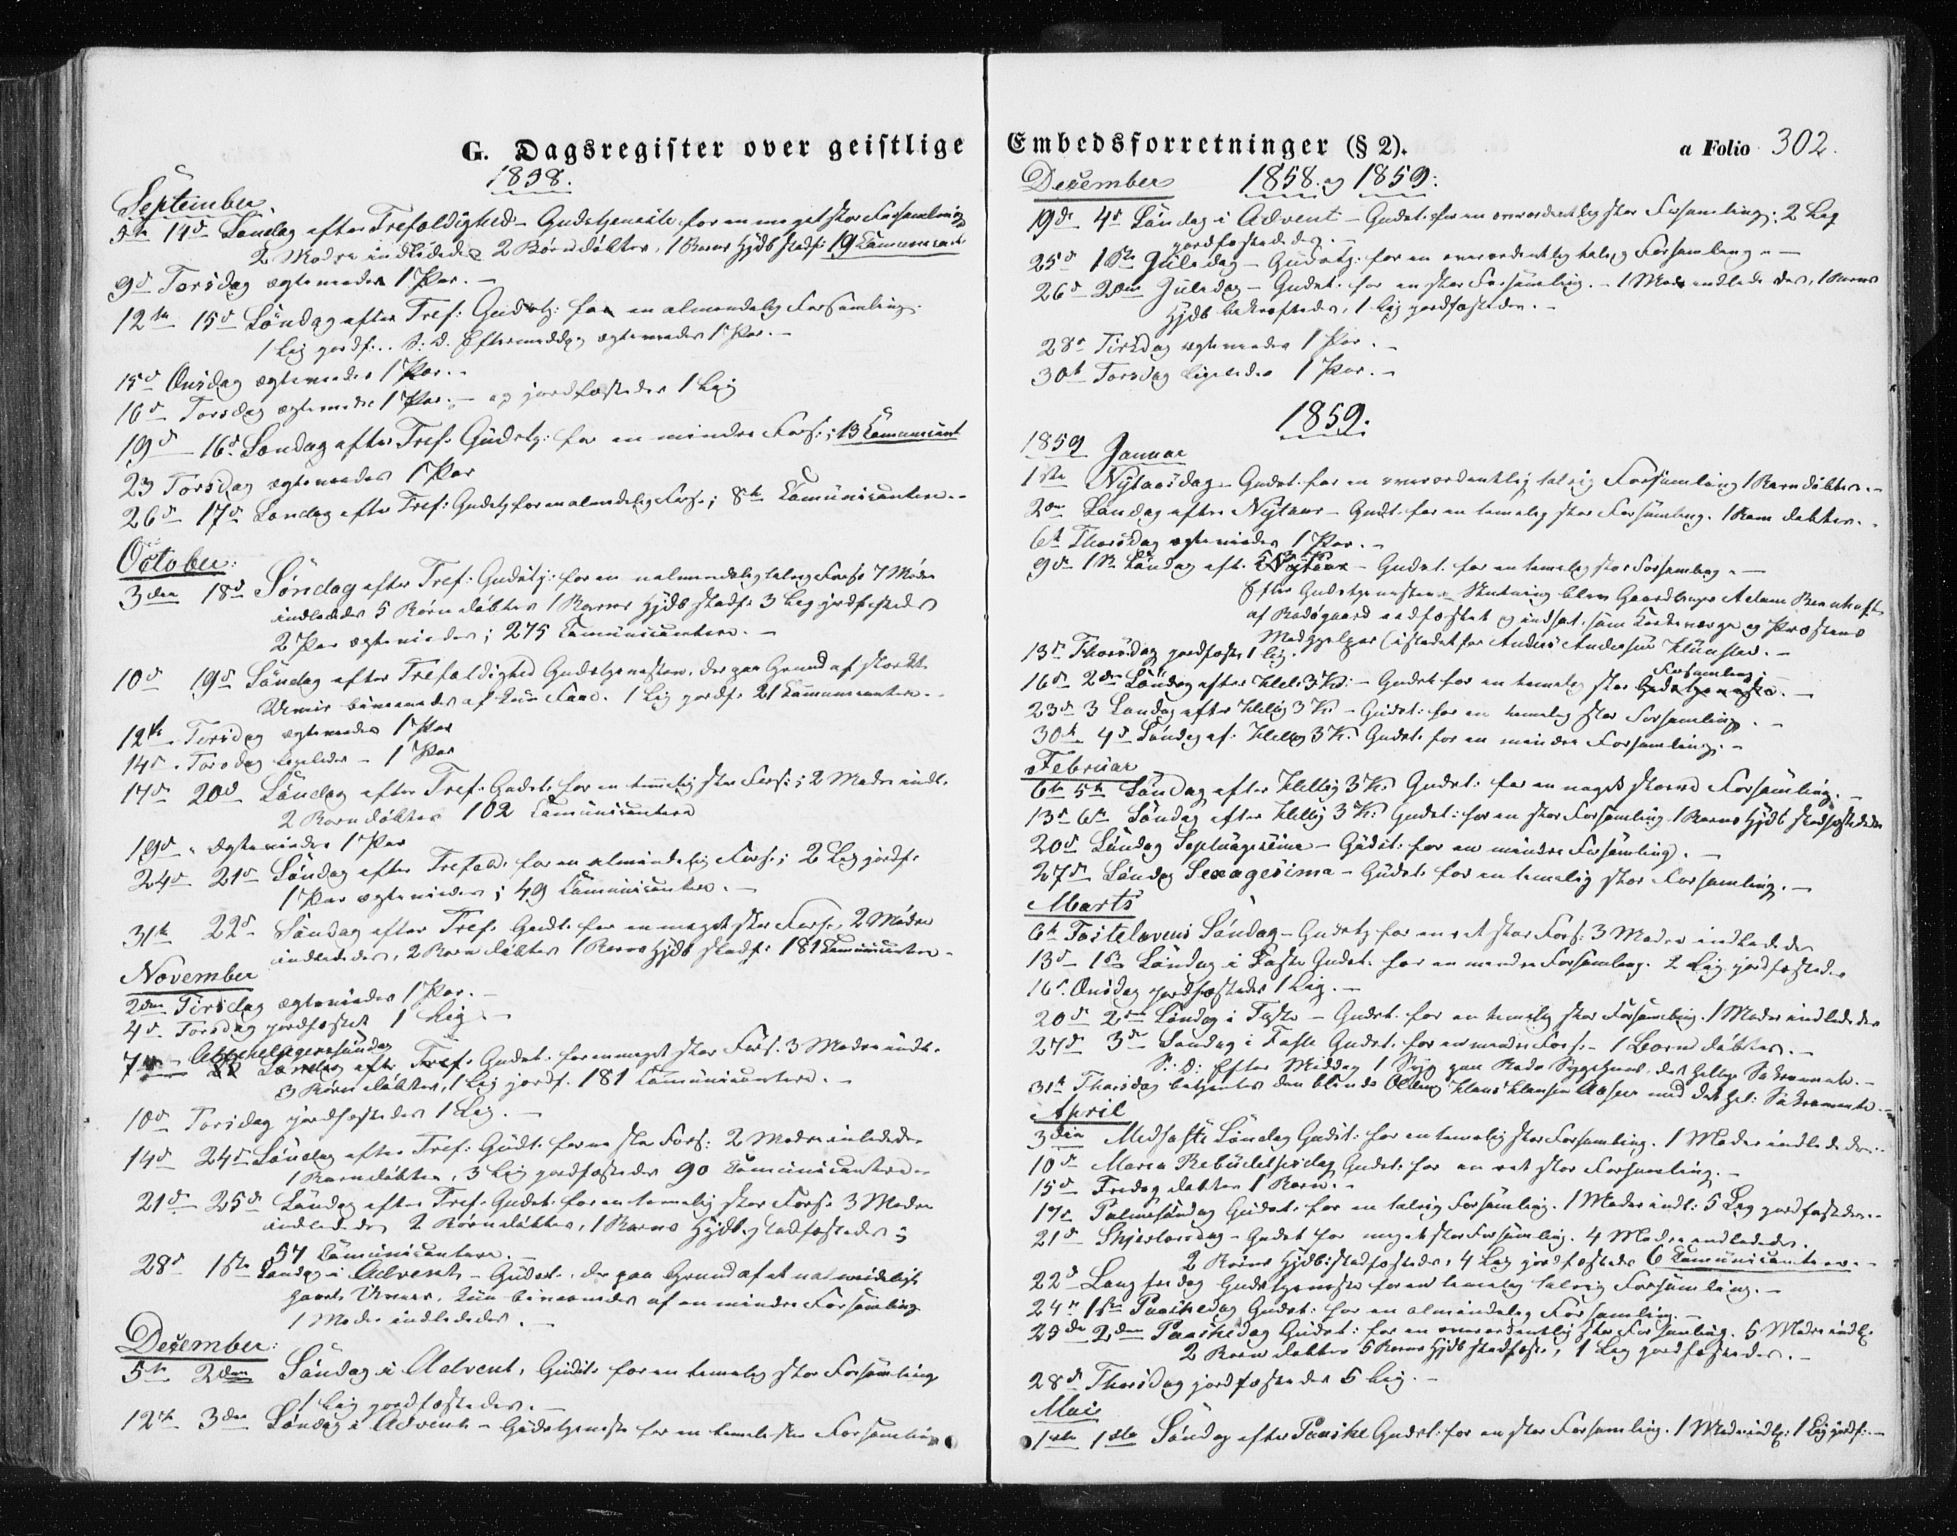 G. Dagsregister over geistlige
1858.
September.
5te 14d Søndag efter Trefoldighed – Gudstjeneste for en meget stor Forsamling
2 Mødre indledede 2 Børn døbtes, 1 Barns Hjdb stadf: 19 Communicant
9d Torsdag ægteviedes 1 Par. –
12te 15d Søndag efter Tref: Gudstj: for en almindelig Forsamling.
1 Lig jordf. S. D. Eftermiddag ægteviedes 1 Par. –
15d Onsdag ægteviedes 1 Par. –
16d Torsdag ægteviedes 1 Par. – og jordfæstedes 1 Lig
19d – 16d Søndag efter Tref. Gudstj: for en mindre Fors.; 13 Communicant
23 Torsdag ægteviedes 1 Par
26d 17d Søndag efter Tref: Gudstj for en almindelig Fors.; 8te Communicantere. –
October:
3die 18d Søndag efter Tref: Gudstj: for en ualmindelig talrig Fors. 7 Mødre
indlededes 5 Børn døbtes 1 Barns Hjdb stadf. 3 Lig jordfæstedes
2 Par ægteviedes; 275 Communicantere. –
10d 19d Søndag efter Trefoldighed Gudstjenesten, der paa Grund af stærkt
Uveir bivaanedes af kun Faae. 1 Lig jordf. 21 Communicantere. –
12te Tirsdag ægteviedes 1 Par
14d Torsdag ligeledes – 1 Par
17d 20d Søndag efter Tref. Gudst. for en temelig stor Fors.; 2 Mødre indl.
2 Børn døbtes 102 Communicantere
19d – ægteviedes 1 Par
24d 21d Søndag efter Trefold. for en almindelig Fors.; 2 Lig jordf.
1 Par ægteviedes; 49 Communicantere. –
31te 22d Søndag efter Tref. Gudt. for en meget stor Fors., 2 Mødre
indlededes, 2 Børn døbtes 1 Barns Hjdb stadf: 181 Communicantere –
November
2den Tirsdag ægteviedes 1 Par. –
4d Torsdag jordfæstet 1 Lig. –
Allehelgenssøndag
7de Søndag efter Tref. Gudst. for en meget stor Fors. 3 Mødre indl.
3 Børn døbtes, 1 Lig jordf. 181 Communicantere. –
10d Torsdag jordfæstedes 1 Lig. –
14d 24d Søndag efter Tref. Gudt. for en stor Fors: 2 Mødre indlededes
1 Barn døbtes, 3 Lig jordfæstedes 90 Communicantere –
21d 25d Søndag efter Tref. Gudst. for en temelig stor Fors. 3 Mødre
indlededes 2 Børn døbtes, 1 Barns Hjdb. stadfæstedes;
57 Communicantere. –
28d 1ste Søndag i Advent – Gudst., der paa Grund af et
Uveir, kun bivaanedes af en mindre Forsamling
1 Moder indlededes. –
December:
5te 2den Søndag i Advent, Gudst. for en temelig stor Forsamling
1 Lig jordfæstedes. –
12te 3die Søndag i Advent – Gudstjeneste for en temelig stor Forsamling
Embedsforretninger (§ 2).
a Folio 302.
December 1858 og 1859:
19de 4d Søndag i Advent – Gudst. for en overordentlig stor Forsamling; 2 Lig
jordfæstedes. –
25d 1ste Juledag – Gudstj. for en overordentlig talrig Forsamling –
26d 2den Juledag – Gudst. for en stor Forsamling. – 1 Moder indlededes, 1 Barns
Hjdb bekræftedes, 1 Lig jordfæstedes. –
28d Tirsdag ægteviedes 1 Par. –
30te Torsdag ligeledes 1 Par. –
1859.
1859 Januar
1ste Nytaarsdag – Gudst. for en overordentlig talrig Forsamling 1 Barn døbtes. –
2den Søndag efter Nytaar – Gudst. for en temelig stor Forsamling. 1 Barn døbtes. –
6te Thorsdag ægteviedes 1 Par. –
9de 1ste Søndag eft. – Gudst. for en temelig stor Forsamling. –
Efter Gudstjenestens Slutning blev Gaardbruger Adam
af Rødsgaard edfæstet og indsat som Kirkeværge og Præstens
Medhjelper (istedetfor Anders Andersen
13d Thorsdag jordfæst. 1 Lig. –
16d 2den Søndag efter Hel. 3 K: – Gudst. for en temelig stor Forsamling. –
23d 3 Søndag efter Hellig 3 K: – Gudst: for en temelig stor Forsamling. –
30te 4d Søndag ef. Hellig 3 K: Gudst. for en mindre Forsamling. –
Februar
6te 5te Søndag efter Hellig 3 K: Gudst: for en noget større Forsamling. –
13d 6te Søndag efter Hellig 3 K: Gudst: for en stor Forsamling 1 Barns Hjdb stadfæstedes
20d Søndag Septuagesima – Gudst: for en mindre Forsamling. –
27d Søndag Sexagesima – Gudst. for en temelig stor Forsamling. –
Marts
6te Fastelavens Søndag – Gudstj for en ret stor Fors: 3 Mødre indlededes
13d 1ste Søndag i Faste Gudst. for en mindre Forsamling. 2 Lig jordfæstedes
16d Onsdag jordfæstedes 1 Lig. –
20d 2den Søndag i Faste – Gudst. for en temelig stor Forsamling. 1 Moder indlededes
27d 3die Søndag i Faste Gudst. for en mindre Fors. – 1 Barn døbtes. –
S. D. Efter Middag 1 Syg paa Røds Sygehuus det hellige Sakramente. –
31te Thorsdag betjentes den blinde Olding Hans Hansen med det hel: Sakramente. –
April
3die Midfaste Søndag Gudst: for en temelig stor Forsamling. 1 Moder indlededes. –
10de Maria Bebudelsesdag Gudst: for en ret stor Forsamling. –
15d Fredag døbtes 1 Barn. –
17d Palmesøndag Gudst. for en talrig Forsamling. 1 Moder indl: 5 Lig jordfæstedes. –
21d Skjertorsdag – Gudst for meget stor Forsamling. 4 Mødre indlededes.
2 Børns Hjdb: stadfæstedes, 4 Lig jordfæstedes 6 Communicantere. –
22d Langfredag Gudstjeneste for en temelig talrig Forsamling. –
24d 1ste Paaskedag Gudst: for en almindelig Forsamling. –
25de 2den Paaskedag Gudst: for en overordentlig stor Forsamling. 5 Mødre indl.
2 Børn døbtes 5 Børns Hjdb stadfæst., 1 Lig jordfæstedes. –
28d Thorsdag jordfæstedes 5 Lig. –
Mai
1ste 1ste Søndag efter Paaske Gudst: for en stor Forsamling. 1 Moder indl: 1 Lig jordf: –